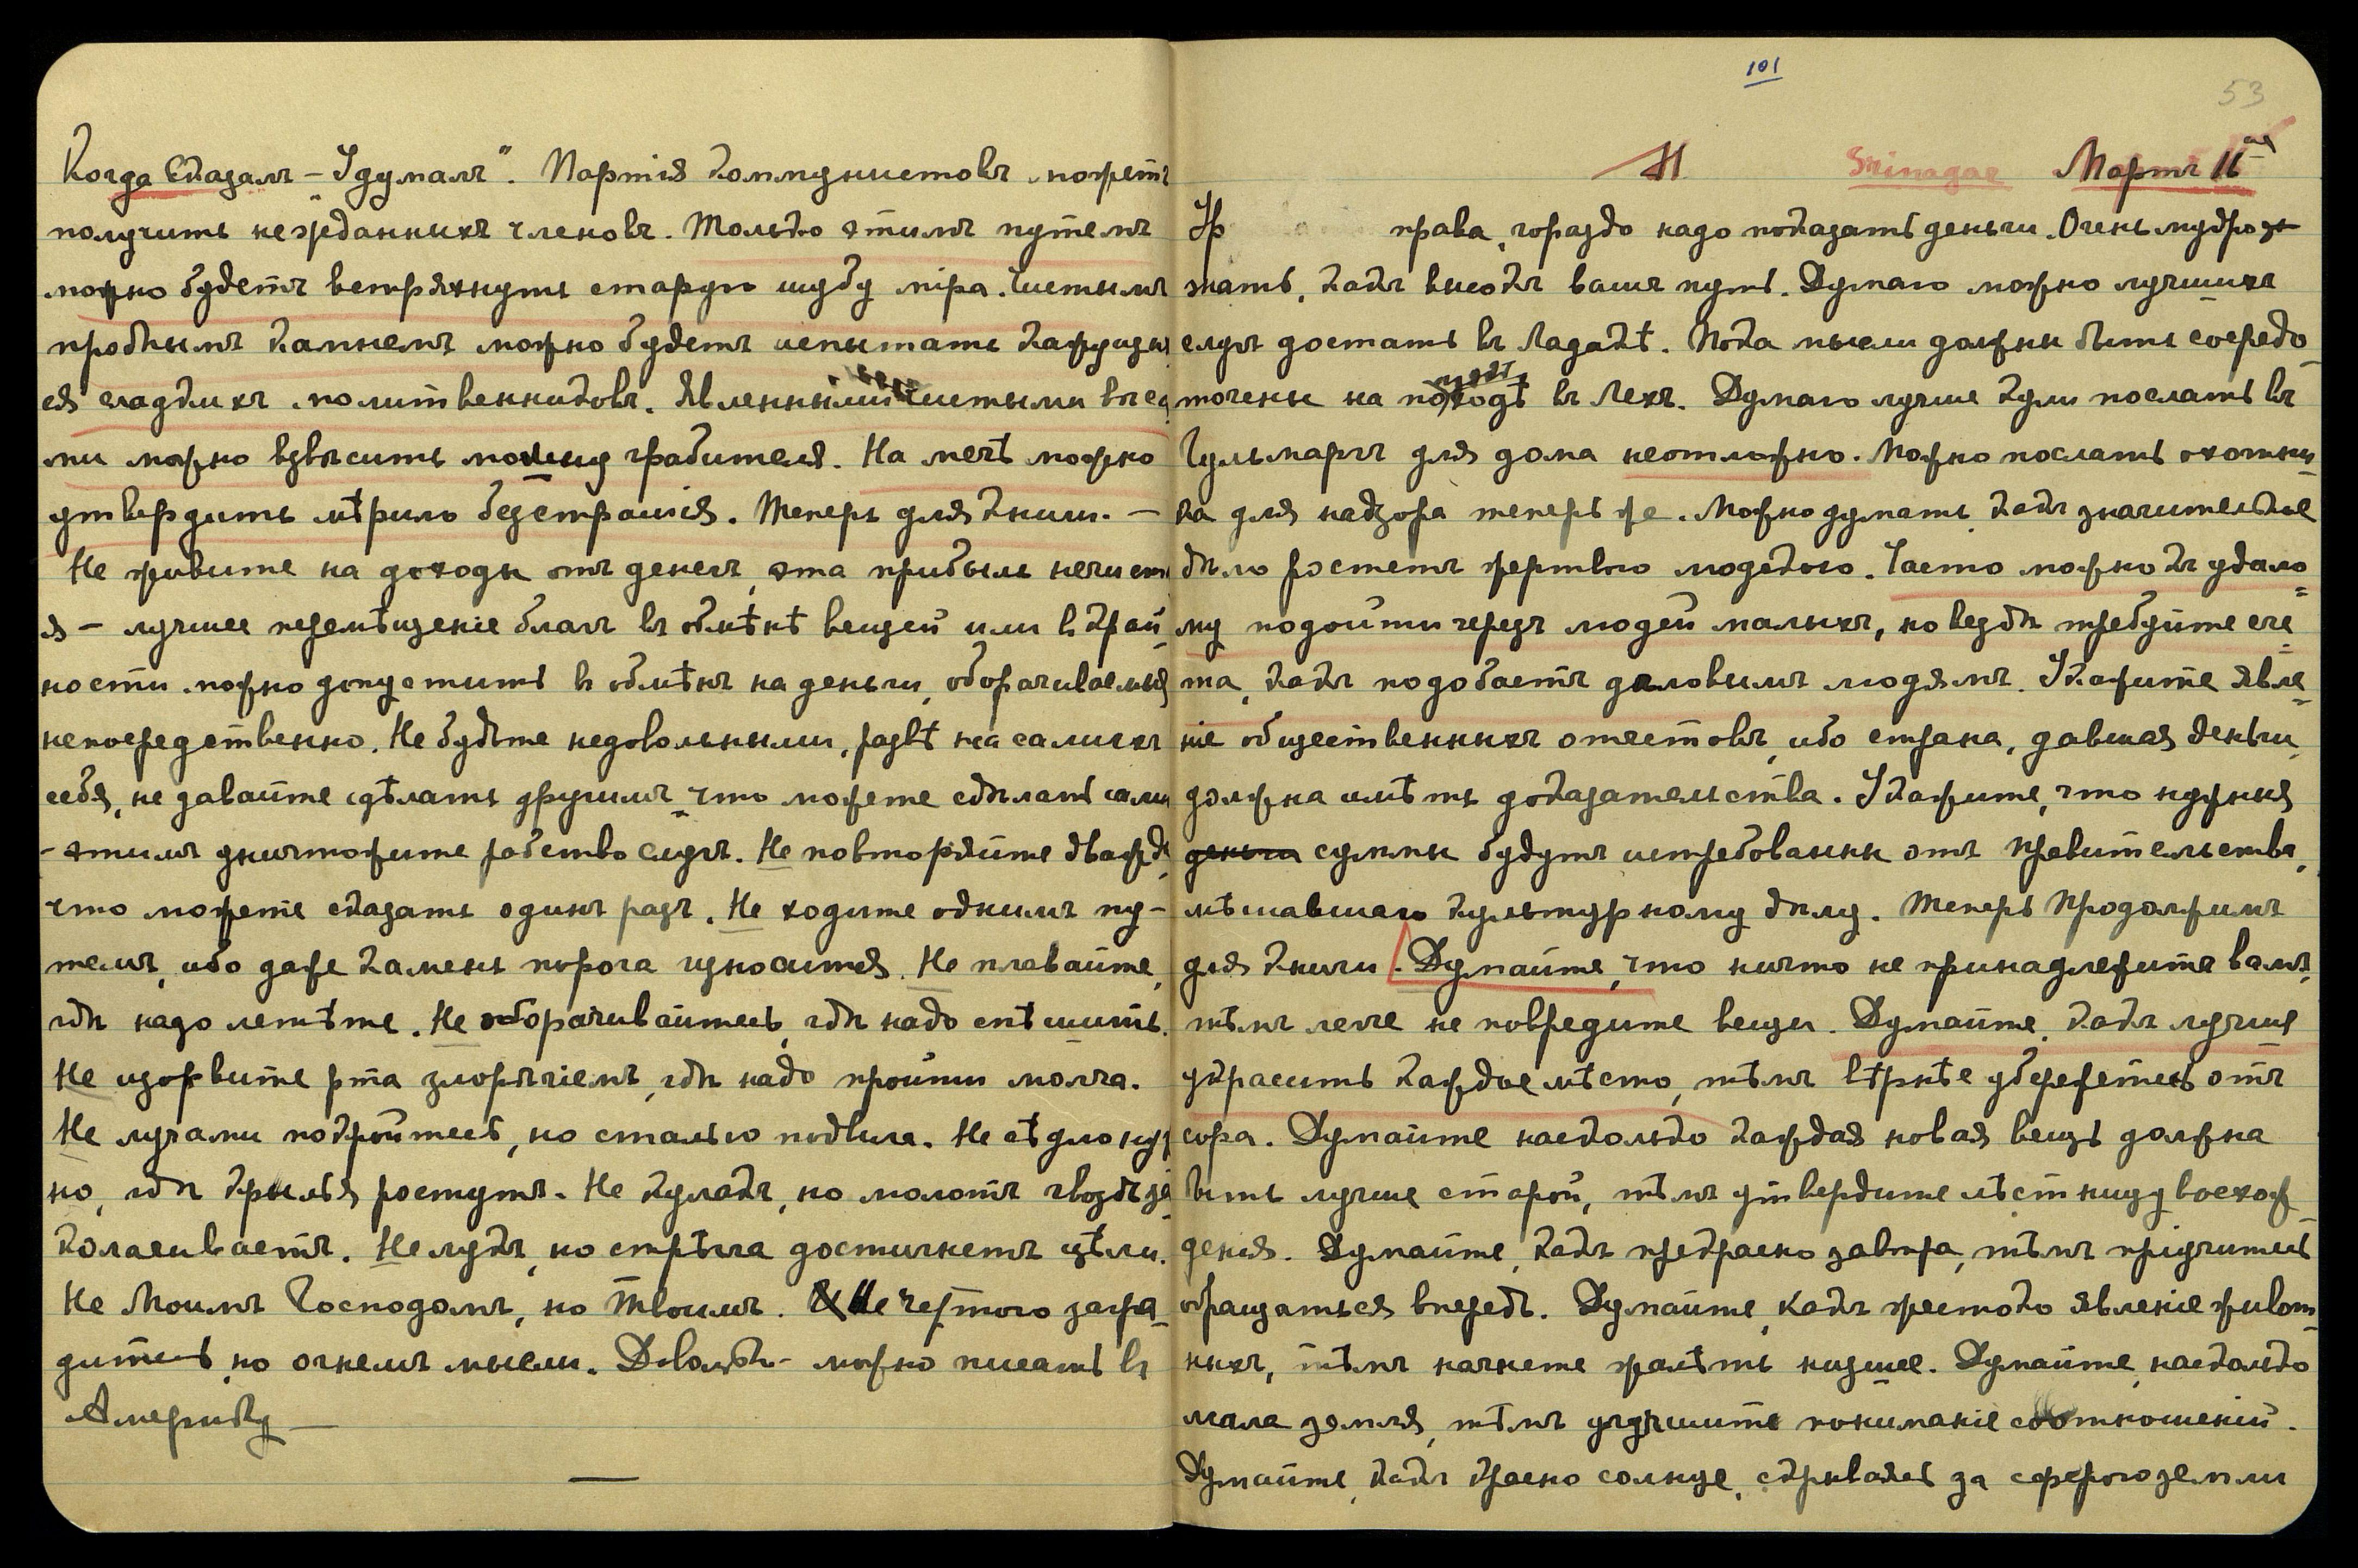 Когда Сказалъ – Удумалъ". Партія коммунистовъ можетъ
получить нежданныхъ членовъ. Только этимъ путемъ
можно будетъ встряхнуть старую шубу міра. Чистымъ
пробнымъ камнемъ можно будетъ испытать кажущих
ся гладкихъ молитвенниковъ. Явленными чистыми вѣса
ми можно взвѣсить грабителя. На мечѣ можно
утвердить мѣрило безстрашія. Теперь для книги. –
Не живите на доходы отъ денегъ, эта прибыль нечиста
я – лучшее перемѣщеніе благъ въ обмѣнѣ вещей или в край
ности можно допустить в обмѣнъ на деньги, оборачиваемыя
непосредственно. Не будьте недовольными, развѣ на самихъ
себя, не давайте сдѣлать другимъ что можете сдѣлать сами
– этимъ уничтожите рабство слугъ. Не повторяйте дважды,
что можете сказать одинъ разъ. Не ходите однимъ пу-
темъ, ибо даже камень порога износится. Не плавайте,
гдѣ надо летѣть. Не оборачивайтесь, гдѣ надо спѣшить.
Не изорвите рта злорѣчіемъ, гдѣ надо пройти молча.
Не лучами покройтесь, но сталью подвига. Не сѣдло нуж
но, гдѣ крылья ростутъ. Не кулакъ, но молотъ гвоздь за
колачиваетъ. Не лукъ, но стрѣла достигнетъ цѣли.
Не Моимъ Господомъ, но Твоимъ. Не чертою загра
дитесь, но огнемъ мысли. Довольно – можно писать въ
Америку –
101
53
М Srinagar Мартъ 11ая
Ур права, гораздо надо показать деньги. Очень мудро
знать, какъ высокъ вашъ путь. Думаю можно лучшихъ
слугъ достать въ Ладакѣ. Пока мысли должны быть сосредо
точены на въ Лехъ. Думаю лучше кули послать въ
Гульмаргъ для дома неотложно. Можно послать охотни
ка для надзора теперь же. Можно думать какъ значительное
дѣло ростетъ жертвою людскою. Часто можно къ удало
му подойти черезъ людей малыхъ, но вездѣ требуйте сче
та, какъ подобаетъ дѣловымъ людямъ. Укажите явле
ніе общественныхъ отчетовъ, ибо страна, давшая деньги,
должна имѣть доказательства. Укажите, что нужныя
деньги суммы будутъ истребованы отъ правительства,
мѣшавшаго культурному дѣлу. Теперь Продолжимъ
для книги. Думайте, что ничто не принадлежитъ вамъ,
тѣмъ легче не повредите вещи. Думайте, какъ лучше
украсить каждое мѣсто, тѣмъ вѣрнѣе убережетесь отъ
сора. Думайте насколько каждая новая вещь должна
быть лучше старой, тѣмъ утвердите лѣстницу восхож
денія. Думайте, какъ прекрасно завтра, тѣмъ пріучитесь
обращаться впередъ. Думайте, какъ жестоко явленіе живот
ныхъ, тѣмъ начнете жалѣть низшее. Думайте, насколько
мала земля, тѣмъ улучшите пониманіе соотношеній.
Думайте, какъ красно солнце, скрываясь за сферою земли